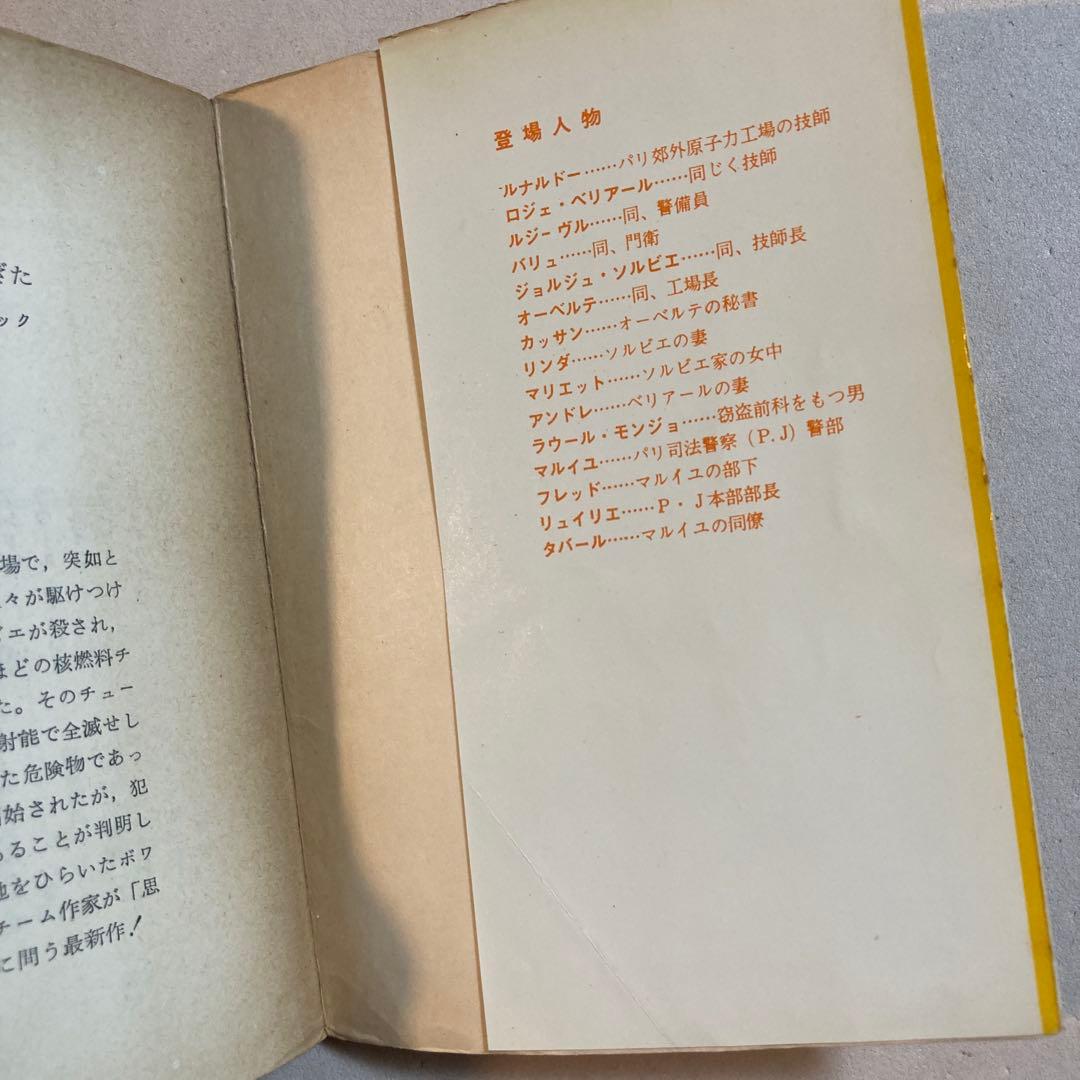 ぎた
ック
場で，突如と
々が駆けつけ
エが殺され，
ほどの核燃料チ
た。そのチュー
射能で全滅せし
た危険物であっ
始されたが，犯
ることが判明し
地をひらいたボワ
チーム作家が「思
に問う最新作！
登場人物
ルナルドー……パリ郊外原子力工場の技師
ロジェ・ベリアール……同じく技師
ルジーヴル……同、警備員
バリュ……同、門衛
ジョルジュ・ソルビエ……同、技師長
オーベルテ……同、工場長
カッサン……オーベルテの秘書
リンダ……ソルビエの妻
マリエット……ソルビエ家の女中
アンドレ……ベリアールの妻
ラウール・モンジョ……窃盗前科をもつ男
マルイユ……パリ司法警察（P.J）警部
フレッド……マルイユの部下
リュイリエ……P・J本部部長
タバール……マルイユの同僚